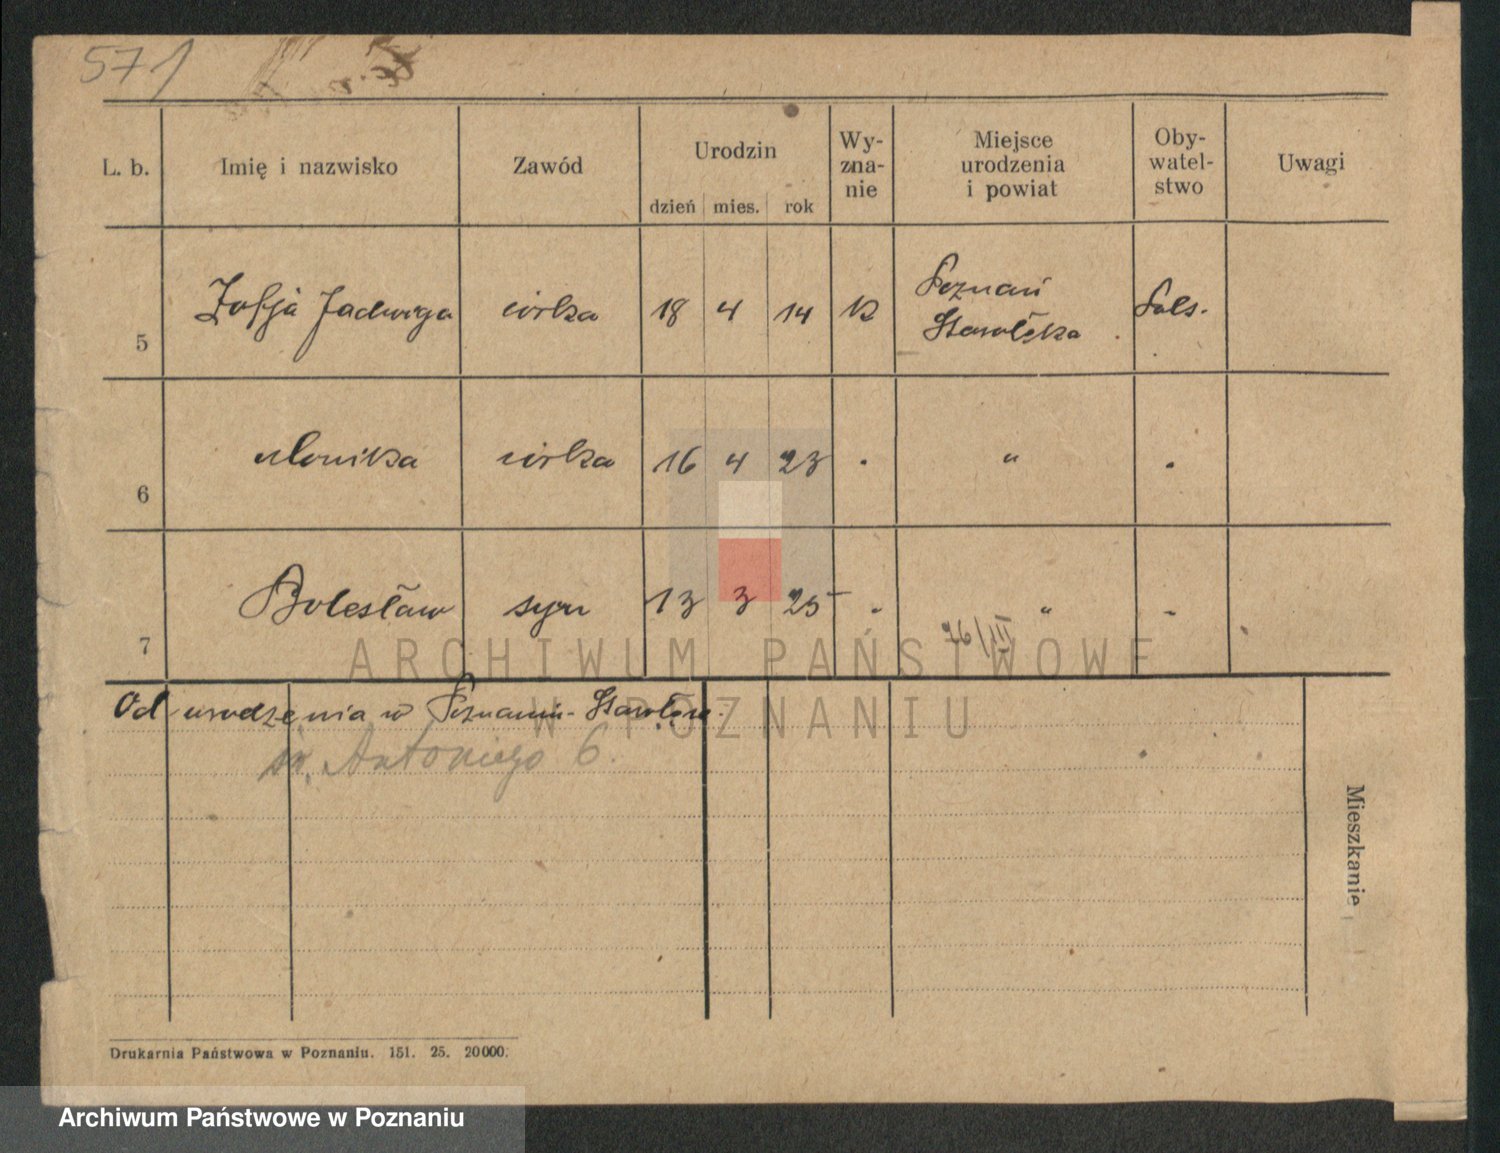 571
L. b.
Imię i nazwisko
Zawód
Urodzin
dzień mies. rok
Wy-
zna-
nie
Miejsce
urodzenia
i powiat
Oby-
watel-
stwo
Uwagi
5 Zofja Jadwiga córka 18 4 14 k Poznań
Starołęka Pols.
6 Monika córka 16 4 23 " "
7 Bolesław syn 13 3 25 " " "
Od urodzenia w Poznaniu-Starołęce.
św. Antoniego 6.
Mieszkanie
Drukarnia Państwowa w Poznaniu. 151. 25. 20000.
ARCHIWUM PAŃSTWOWE
W POZNANIU
Archiwum Państwowe w Poznaniu